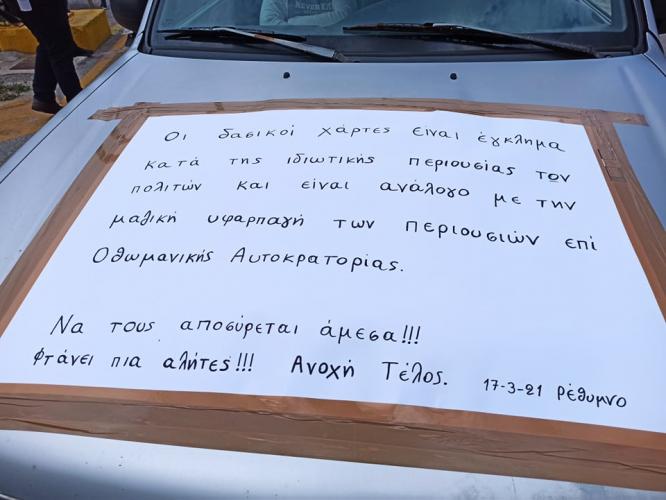 Οι δασικοί χάρτες είναι έγκλημα
κατά της ιδιωτικής περιουσίας των
πολιτών και είναι ανάλογο με την
μαζική υφαρπαγή των περιουσιών επί
Οθωμανικής Αυτοκρατορίας.
Να τους αποσύρεται άμεσα!!!
Φτάνει πια αλήτες!!! Ανοχή Τέλος. 17-3-21 Ρέθυμνο